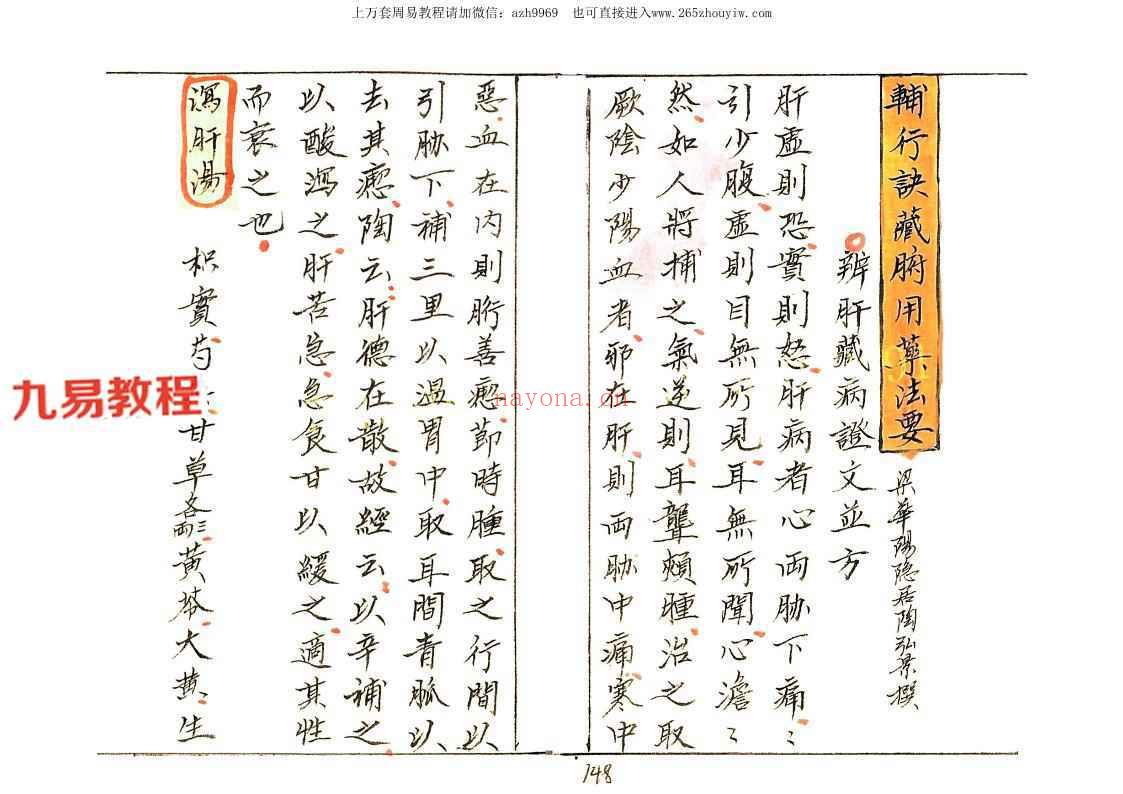 上万套周易教程请加微信：azh9969 也可直接进入www.265zhouyiw.com
輔行訣藏腑用藥法要 梁華陽隐居陶弘景撰
辨肝藏病證文並方
肝虛則恐實則怒肝病者心兩胁下痛〻
引少腹虛則目無所見耳無所聞心澹〻
然如人將捕之氣逆則耳聾頰腫治之取
厥陰少陽血者邪在肝則兩胁中痛寒中
惡血在内則胻善瘛節時腫取之行間以
引胁下補三里以溫胃中取耳間青脈以
去其瘛陶云肝德在散故經云以辛補之
以酸瀉之肝苦急急食甘以緩之適其性
而衰之也
瀉肝湯 枳實芍〻甘草各三兩黄芩大黄生
148
九易教程
nayona.cn